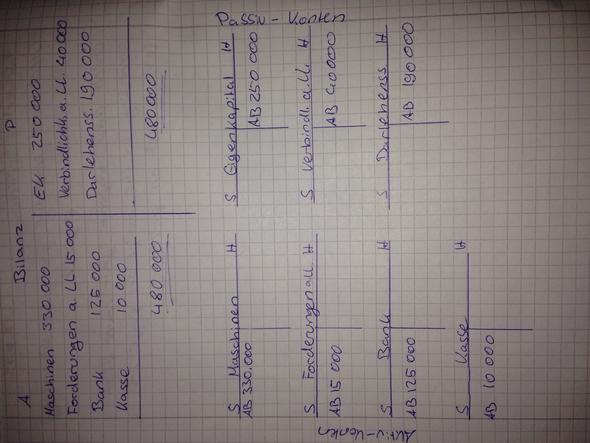 A Bilanz P
Maschinen 330 000 EK 250 000
Forderungen a. LL 15 000 Verbindlichk. a. LL. 40 000
Bank 125 000 Darlehenss. 190 000
Kasse 10 000
480 000 480 000
Aktiv-Konten Passiv-Konten
S Maschinen H S Eigenkapital H
AB 330.000 AB 250 000
S Forderungen aLL H S Verbindl. a. LL. H
AB 15 000 AB 40 000
S Bank H S Darlehenss H
AB 125 000 AB 190 000
S Kasse H
AB 10 000